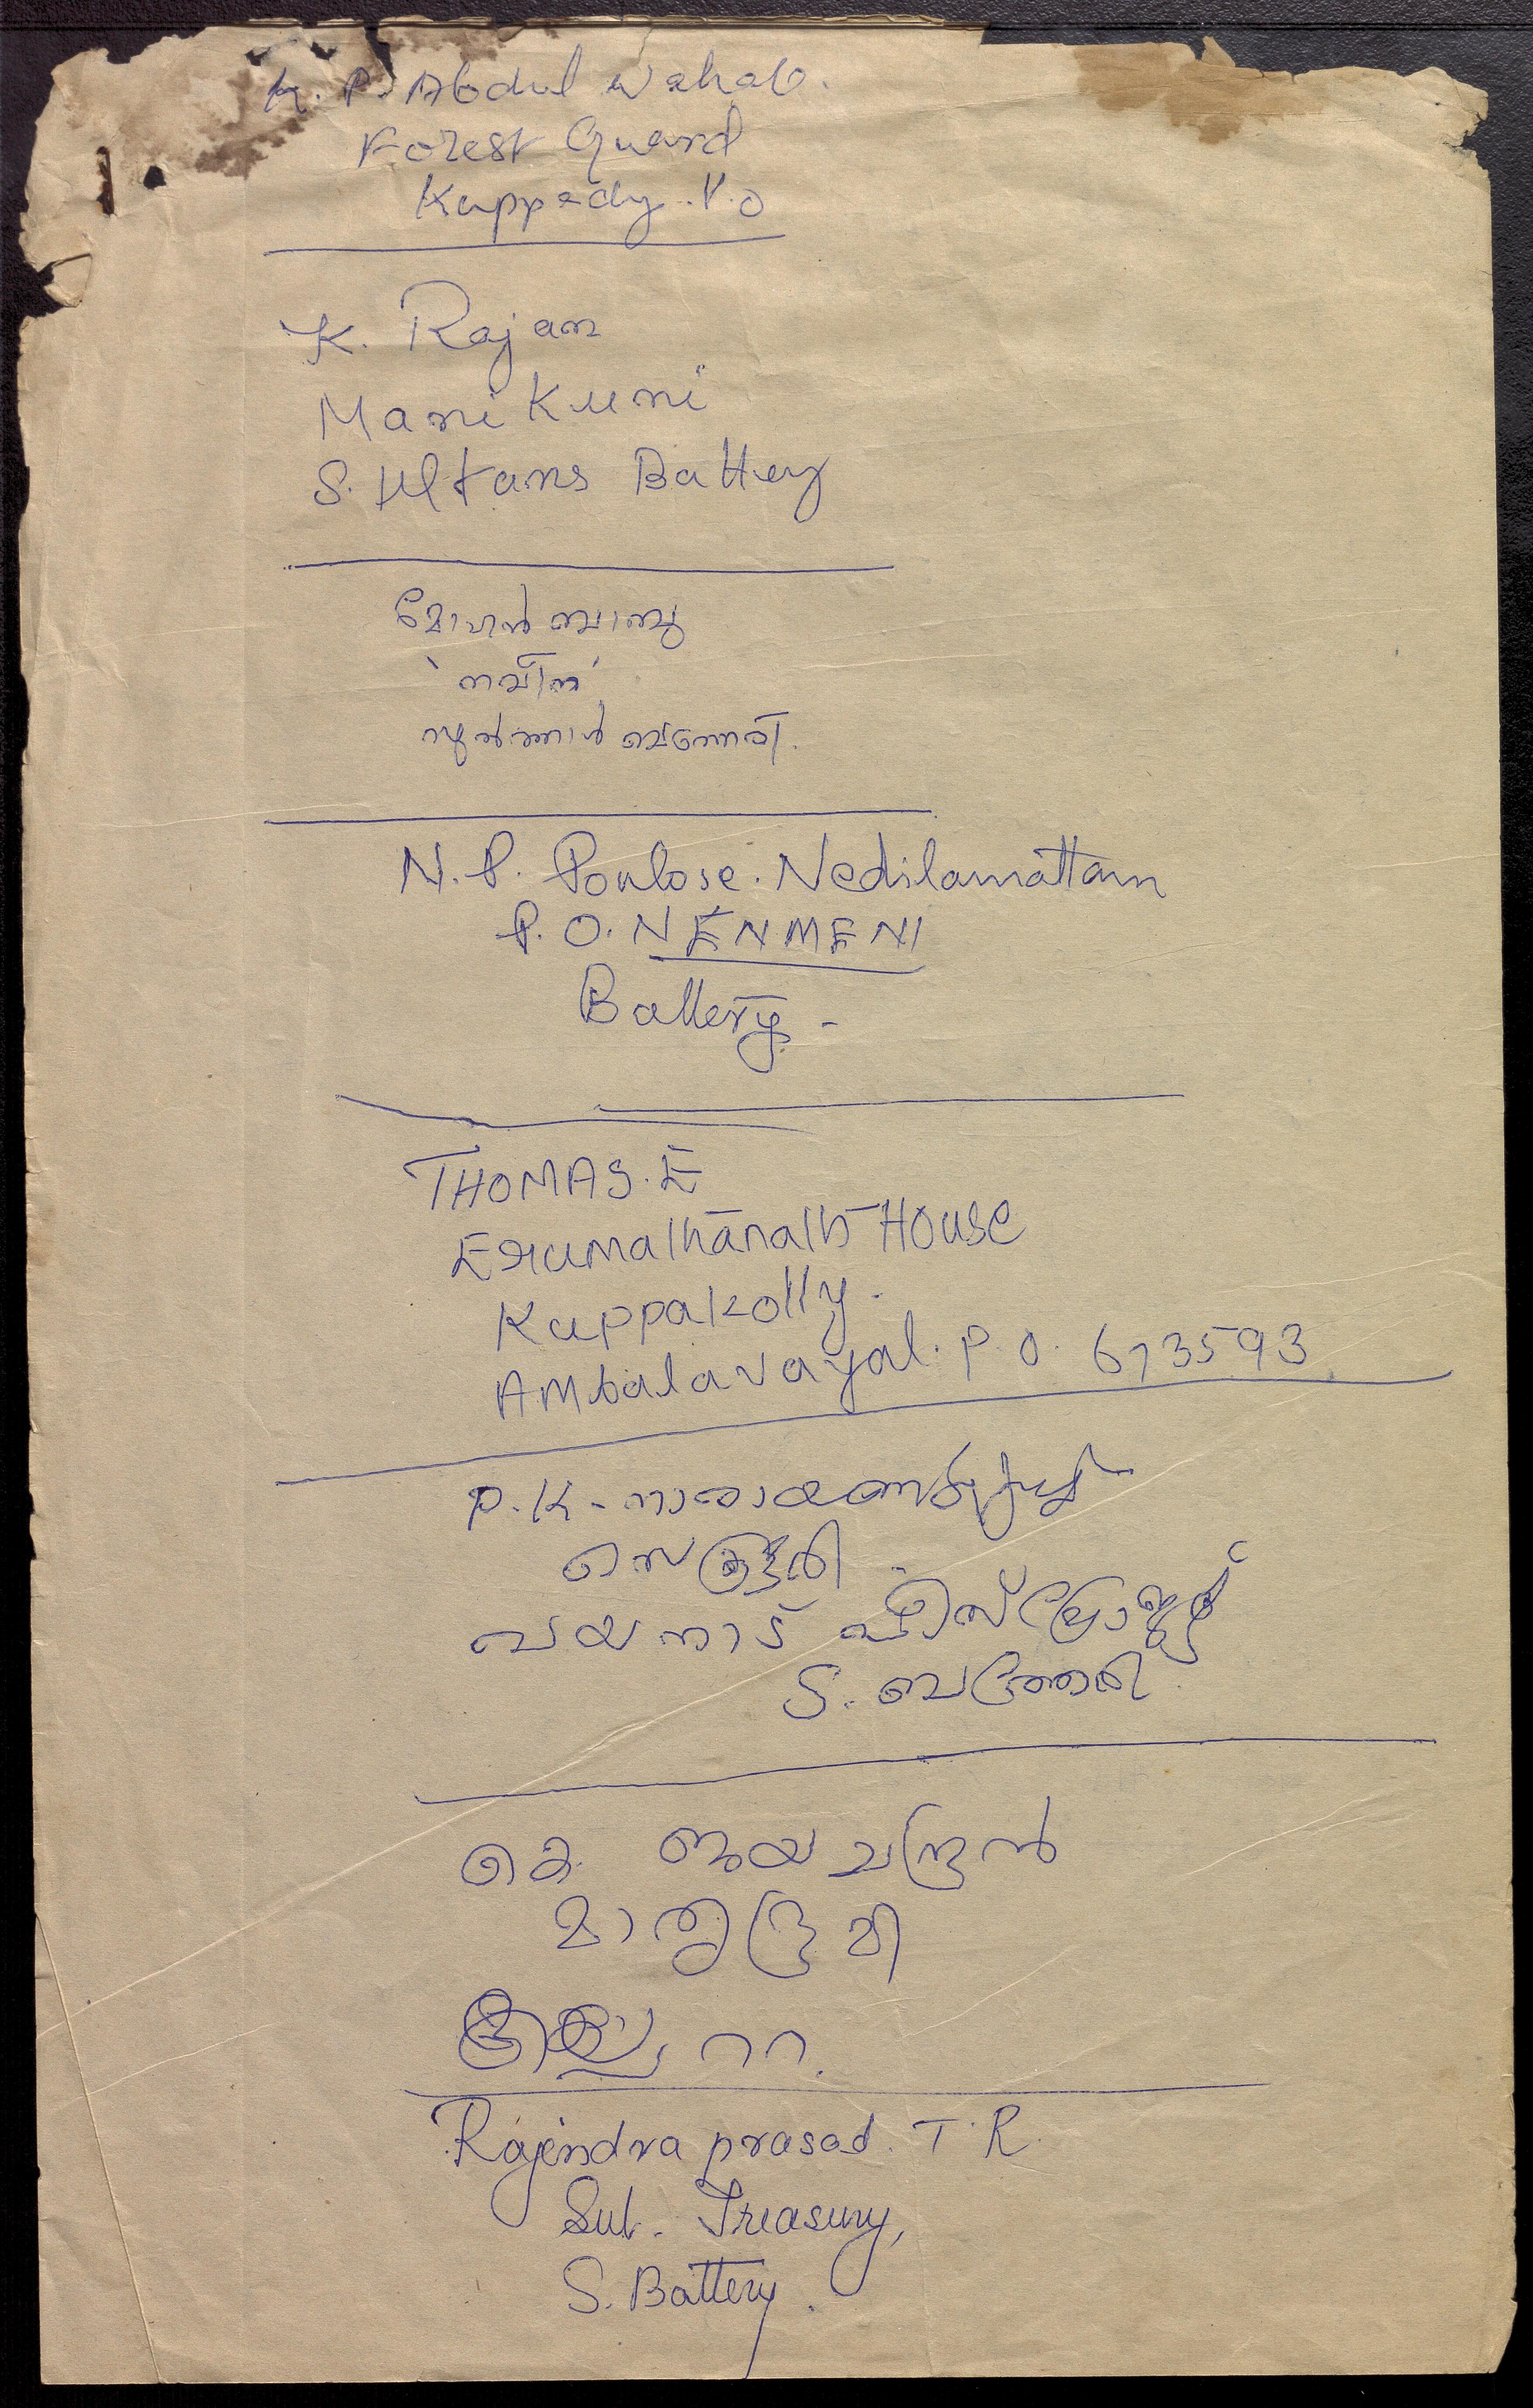 K. P. Abdul Wahab.
Forest Guard
Kuppady. P.O
K. Rajan
Mani Kuni
S. Ultans Battery
മോഹൻ ബാബു
'നവീന'
സുൽത്താൻ ബത്തേരി.
N. P. Poulose. Nedilamattam
P. O. NENMENI
Battery -
THOMAS. E
Erumathanath House
Kuppakolly.
AMbalavayal. P. O. 673593
P. K. നാരായണൻ
സെക്രട്ടരി
വയനാട്
S. ബത്തേരി.
കെ. ജയചന്ദ്രൻ
മാതൃഭൂമി
Rajendra prasad. T. R.
Sub. Treasury,
S. Battery.